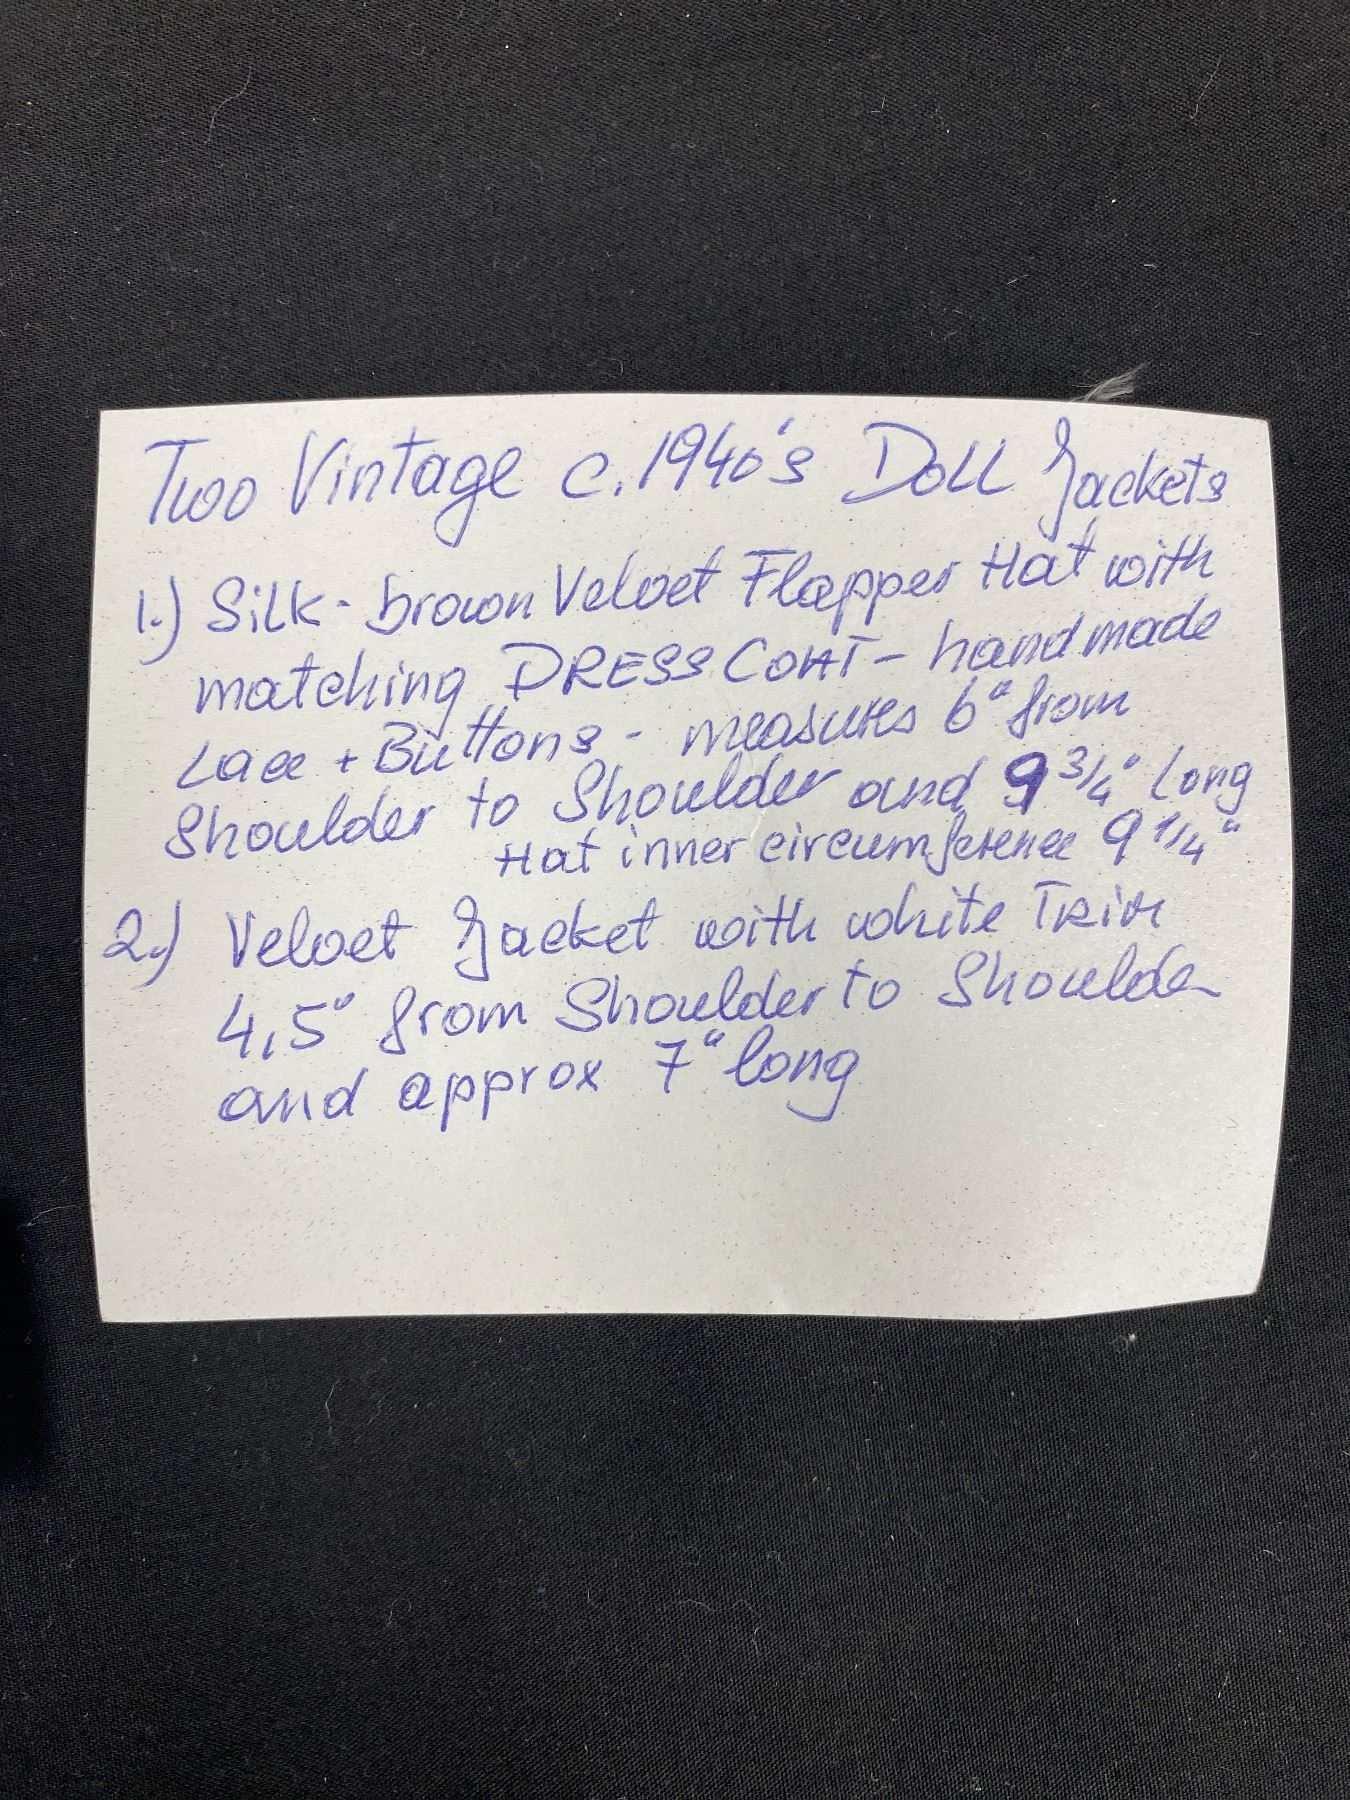 Two Vintage c. 1940's Doll Jackets
1.) Silk-brown Velvet Flapper Hat with
matching DRESS COAT - handmade
Lace + Buttons - measures 6" from
Shoulder to Shoulder and 9 3/4" Long
Hat inner circumference 9 1/4"
2.) Velvet Jacket with white Trim
4,5" from Shoulder to Shoulder
and approx 7" long